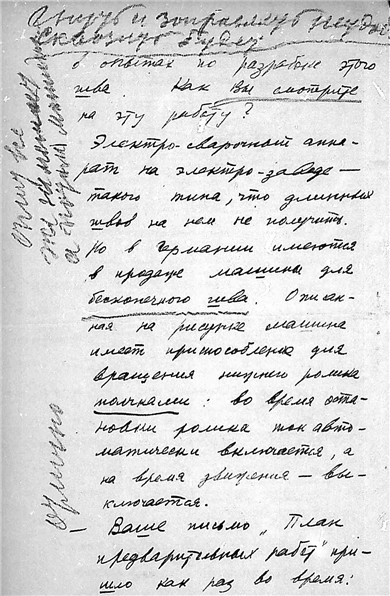 и
будет
в опытах по разработке этого
шва. Как Вы смотрите
на эту работу?
Электро-сварочный аппа-
рат на электро-заводе —
такого типа, что длинных
швов на нем не получить.
Но в Германии имеются
в продаже машины для
бесконечного шва. Описан-
ная на рисунке машина
имеет приспособление для
вращения нижнего ролика
толчками: во время оста-
новки ролика ток авто-
матически включается, а
на время движения — вы-
ключается.
— Ваше письмо „План
предварительных работ" при-
шло как раз во время:
все
а
отлично